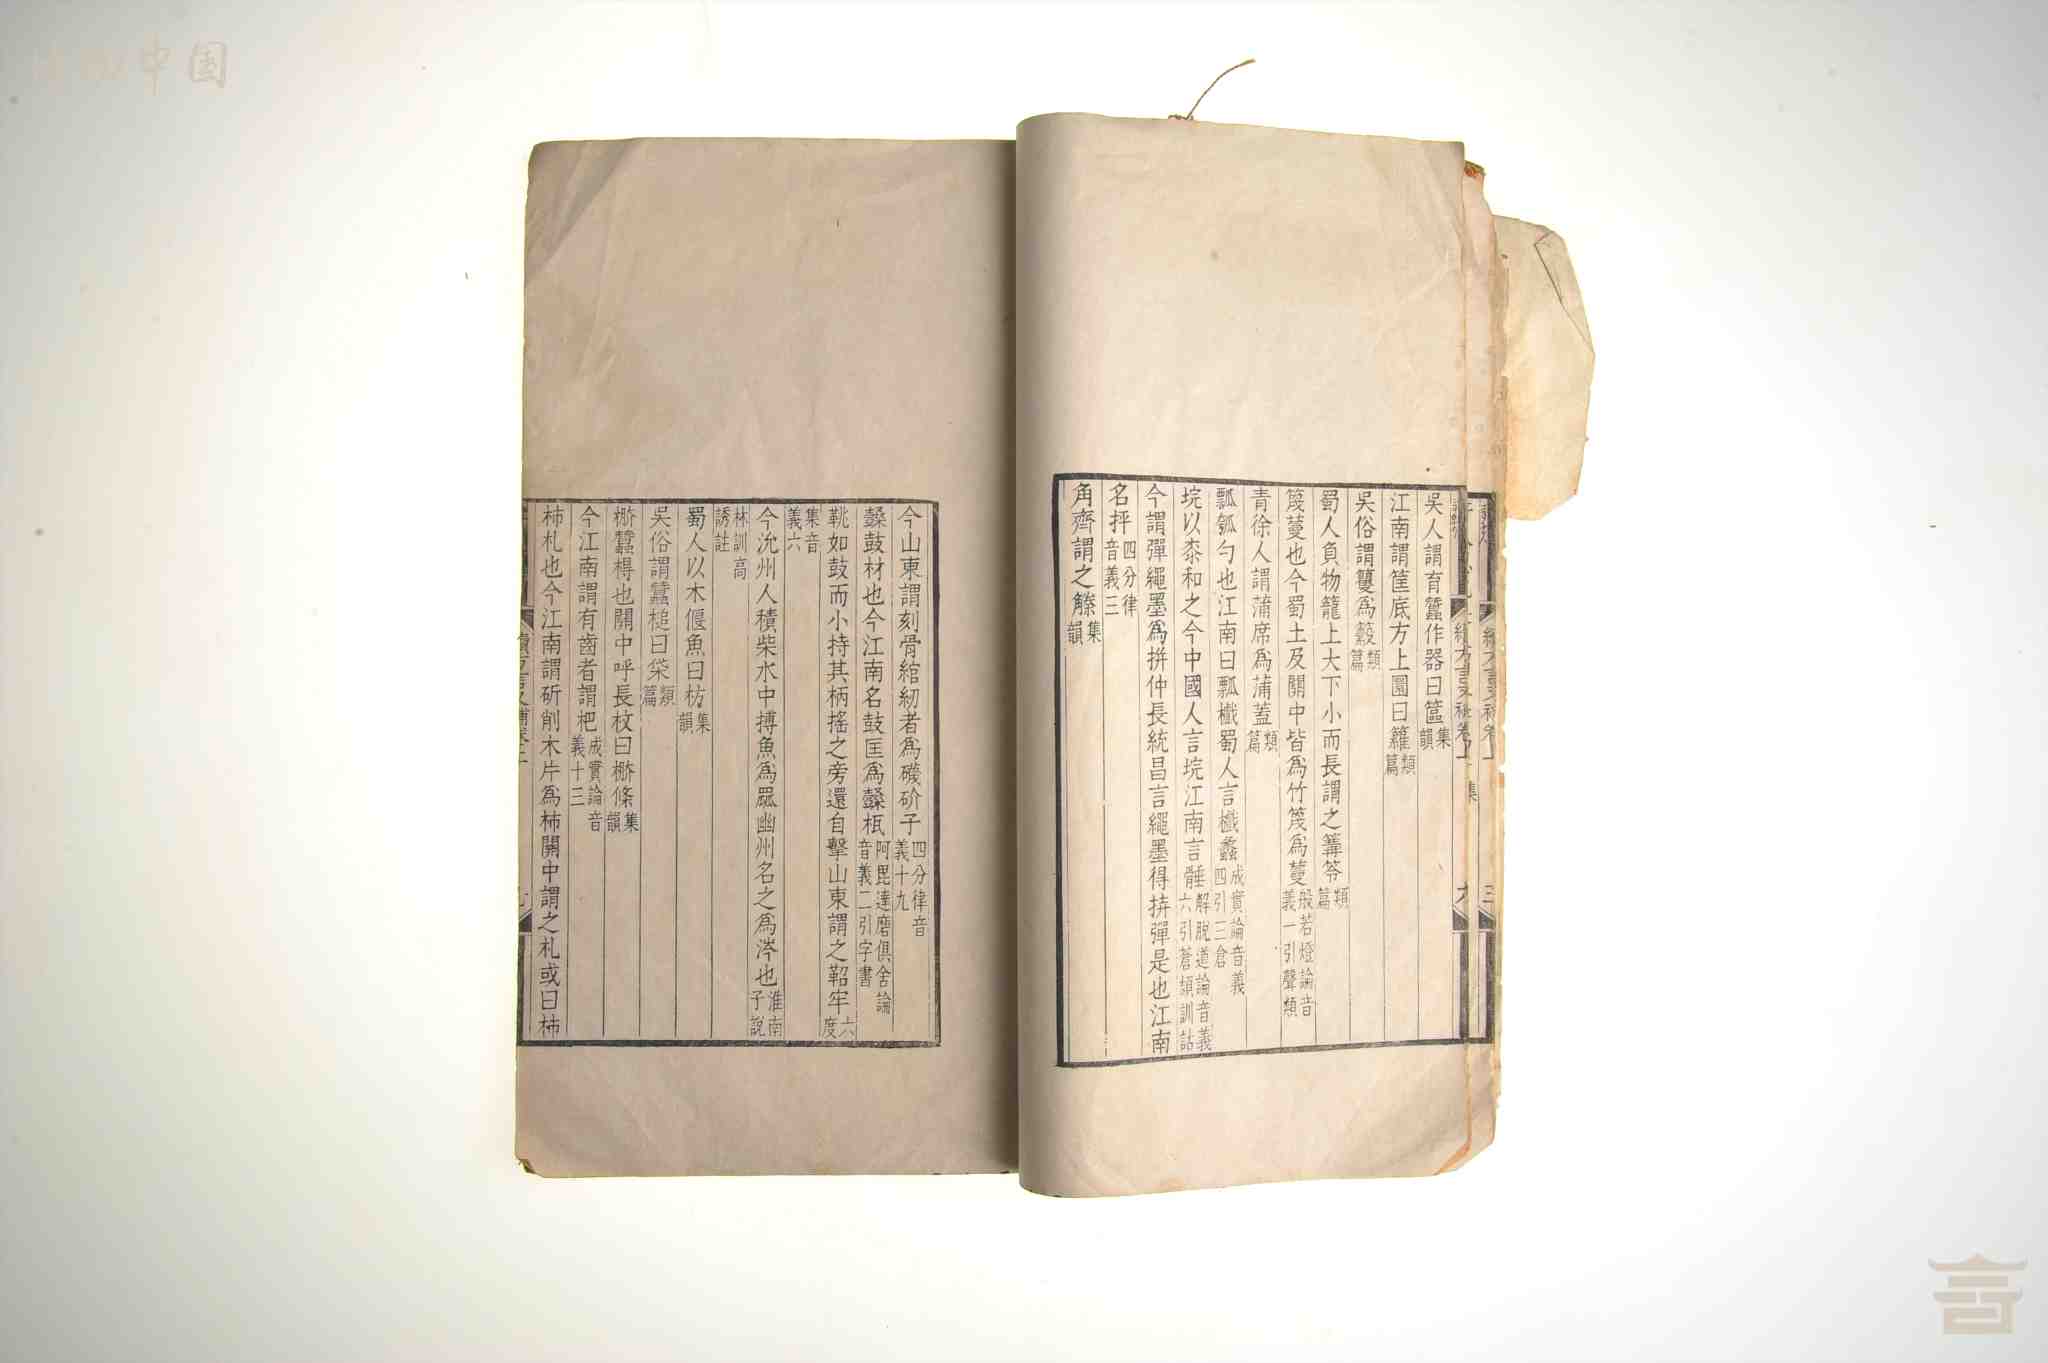 中国
吳人謂育蠶作器曰筁集韻
江南謂筐底方上圜曰籮類篇
吳俗謂籰爲䈅類篇
蜀人負物籠上大下小而長謂之篝笭類篇
篾䕠也今蜀土及關中皆爲竹篾爲䕠般若燈論音義一引聲類
青徐人謂蒲席爲蒲蓋類篇
瓢瓠勺也江南曰瓢㰕蜀人言㰕蠡成實論音義四引三倉
垸以桼和之今中國人言垸江南言䯦解脫道論音義六引蒼頡訓詁
今謂彈繩墨爲拼仲長統昌言繩墨得拼彈是也江南
名抨四分律音義三
角齊謂之觻集韻
今山東謂刻骨綰紉者爲䃯砎子四分律音義十九
鼜鼓材也今江南名鼓匡爲鼜柢阿毘達磨俱舍論音義二引字書
鞉如鼓而小持其柄搖之旁還自擊山東謂之鞀牢六度
集音義六
今沇州人積柴水中搏魚爲罧幽州名之爲涔也淮南子說
林訓高誘註
蜀人以木偃魚曰枋集韻
吳俗謂蠶槌曰㭲類篇
㯕蠶㭙也關中呼長杖曰㯕條集韻
今江南謂有齒者謂杷成實論音義十三
柿札也今江南謂斫削木片爲柿關中謂之札或曰柿